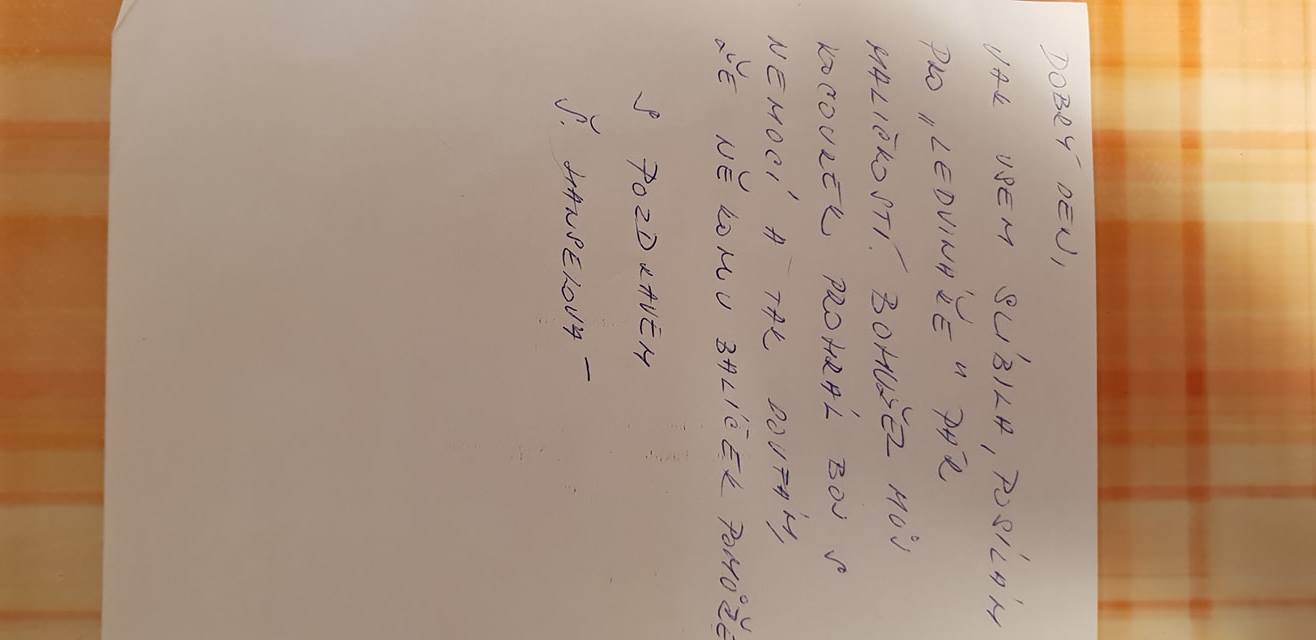 DOBRÝ DEN,
JAK JSEM SLÍBILA, POSÍLÁM
PRO „LEDVINÁŘE" PÁR
MALIČKOSTÍ. BOHUŽEL MŮJ
KOCOUREK PROHRÁL BOJ S
NEMOCÍ A TAK DOUFÁM,
ŽE NĚKOMU BALÍČEK POMŮŽE
S POZDRAVEM
Š. HANSELOVÁ